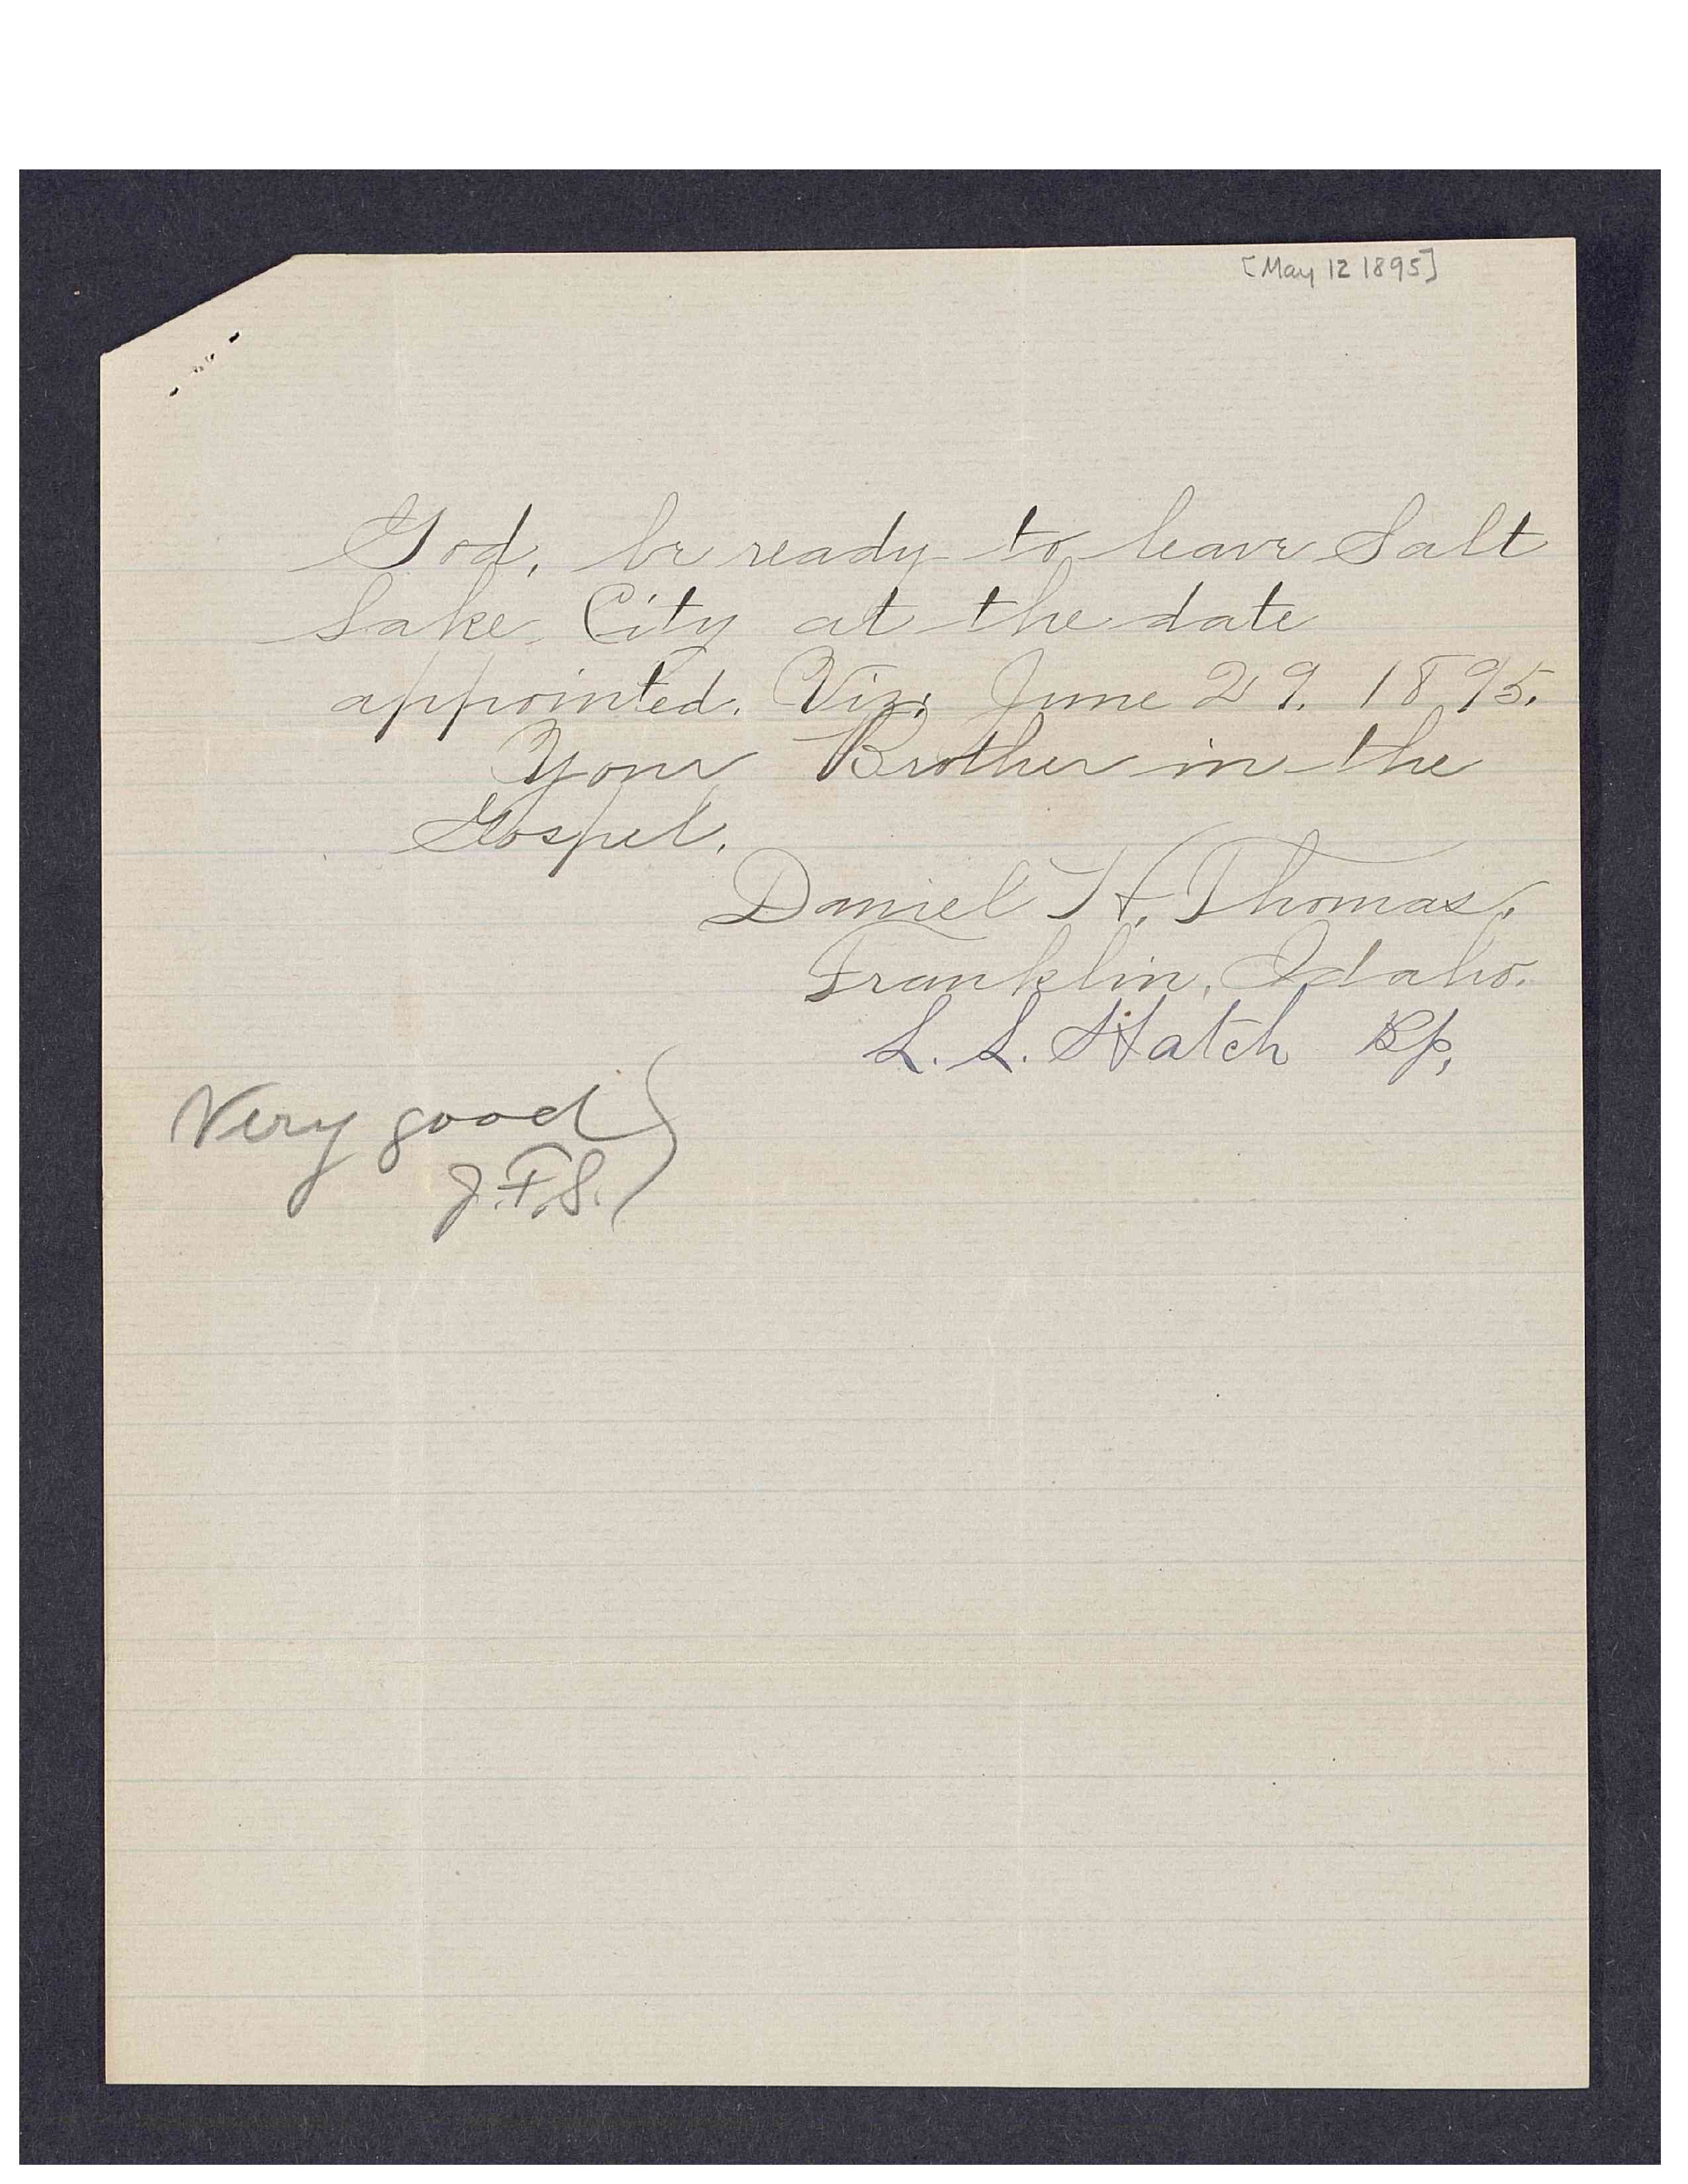 [May 12 1895]
God, be ready to leave Salt
Lake City at the date
appointed. Viz; June 29. 1895.
Your Brother in the
Gospel.
Daniel H. Thomas.
Franklin, Idaho.
L. L. Hatch Bp,
Very good
J.F.S.